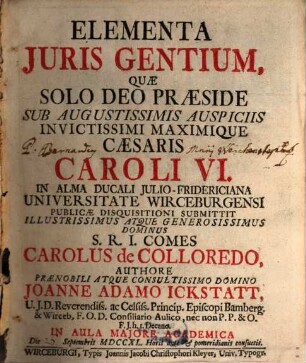 ELEMENTA
JURIS GENTIUM,
QUÆ
SOLO DEO PRÆSIDE
SUB AUGUSTISSIMIS AUSPICIIS
INVICTISSIMI MAXIMIQUE
CÆSARIS
CAROLI VI.
IN ALMA DUCALI JULIO-FRIDERICIANA
UNIVERSITATE WIRCEBURGENSI
PUBLICÆ DISQUISITIONI SUBMITTIT
ILLUSTRISSIMUS ATQUE GENEROSISSIMUS
DOMINUS
S. R. I. COMES
CAROLUS de COLLOREDO,
AUTHORE
PRÆNOBILI ATQUE CONSULTISSIMO DOMINO
JOANNE ADAMO ICKSTATT,
U. J. D. Reverendiss. ac Celsiss. Princip. Episcopi Bamberg.
& Wirceb. F. O. D. Consiliario Aulico, nec non P. P. & O.
IN AULA MAJORE ACADEMICA
Die Septembris MDCCXL. Horis pomeridianis consuetis.
WIRCEBURGI, Typis Joannis Jacobi Christophori Kleyer, Univ. Typogr.